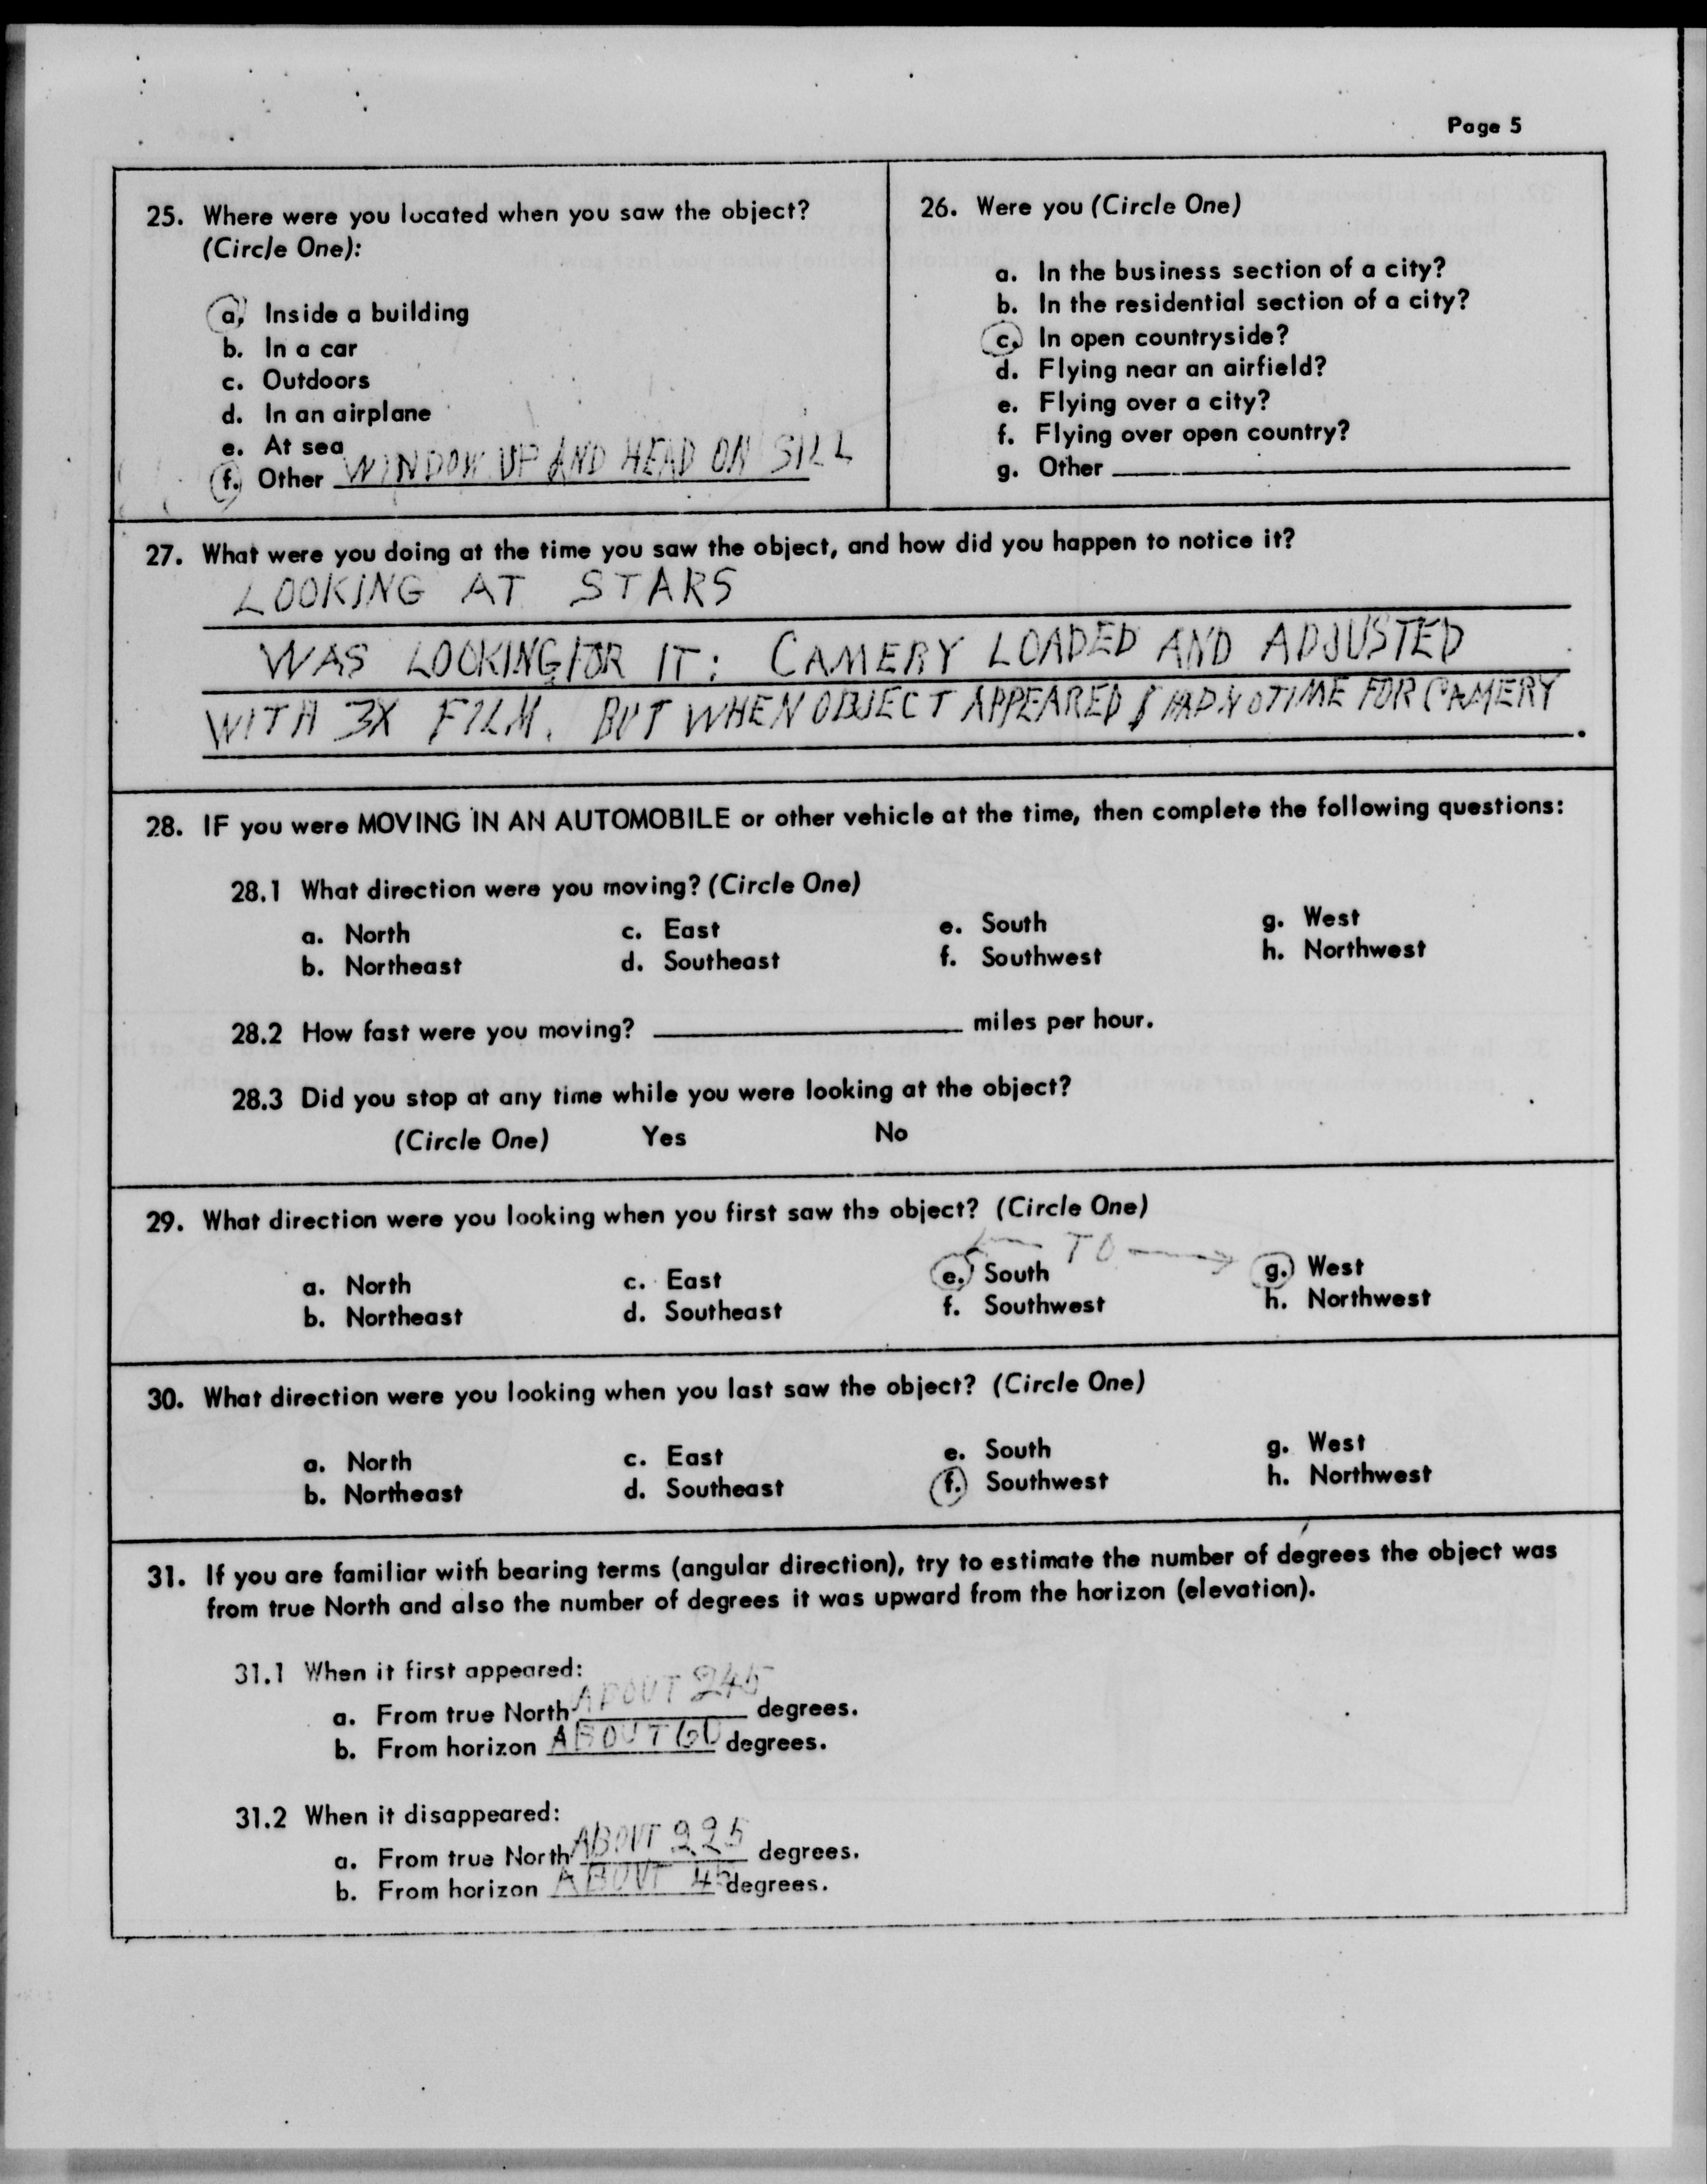 Page 5
25. Where were you located when you saw the object?
(Circle One):
a. Inside a building
b. In a car
c. Outdoors
d. In an airplane
e. At sea
f. Other WINDOW UP AND HEAD ON SILL
26. Were you (Circle One)
a. In the business section of a city?
b. In the residential section of a city?
c. In open countryside?
d. Flying near an airfield?
e. Flying over a city?
f. Flying over open country?
g. Other
27. What were you doing at the time you saw the object, and how did you happen to notice it?
LOOKING AT STARS
WAS LOOKING FOR IT: CAMERY LOADED AND ADJUSTED
WITH 3X FILM. BUT WHEN OBJECT APPEARED I HAD NO TIME FOR CAMERY.
28. IF you were MOVING IN AN AUTOMOBILE or other vehicle at the time, then complete the following questions:
28.1 What direction were you moving? (Circle One)
a. North c. East e. South g. West
b. Northeast d. Southeast f. Southwest h. Northwest
28.2 How fast were you moving? miles per hour.
28.3 Did you stop at any time while you were looking at the object?
(Circle One) Yes No
29. What direction were you looking when you first saw the object? (Circle One)
TO
a. North c. East e. South g. West
b. Northeast d. Southeast f. Southwest h. Northwest
30. What direction were you looking when you last saw the object? (Circle One)
a. North c. East e. South g. West
b. Northeast d. Southeast f. Southwest h. Northwest
31. If you are familiar with bearing terms (angular direction), try to estimate the number of degrees the object was
from true North and also the number of degrees it was upward from the horizon (elevation).
31.1 When it first appeared:
a. From true North ABOUT 245 degrees.
b. From horizon ABOUT 60 degrees.
31.2 When it disappeared:
a. From true North ABOUT 225 degrees.
b. From horizon ABOUT 45 degrees.